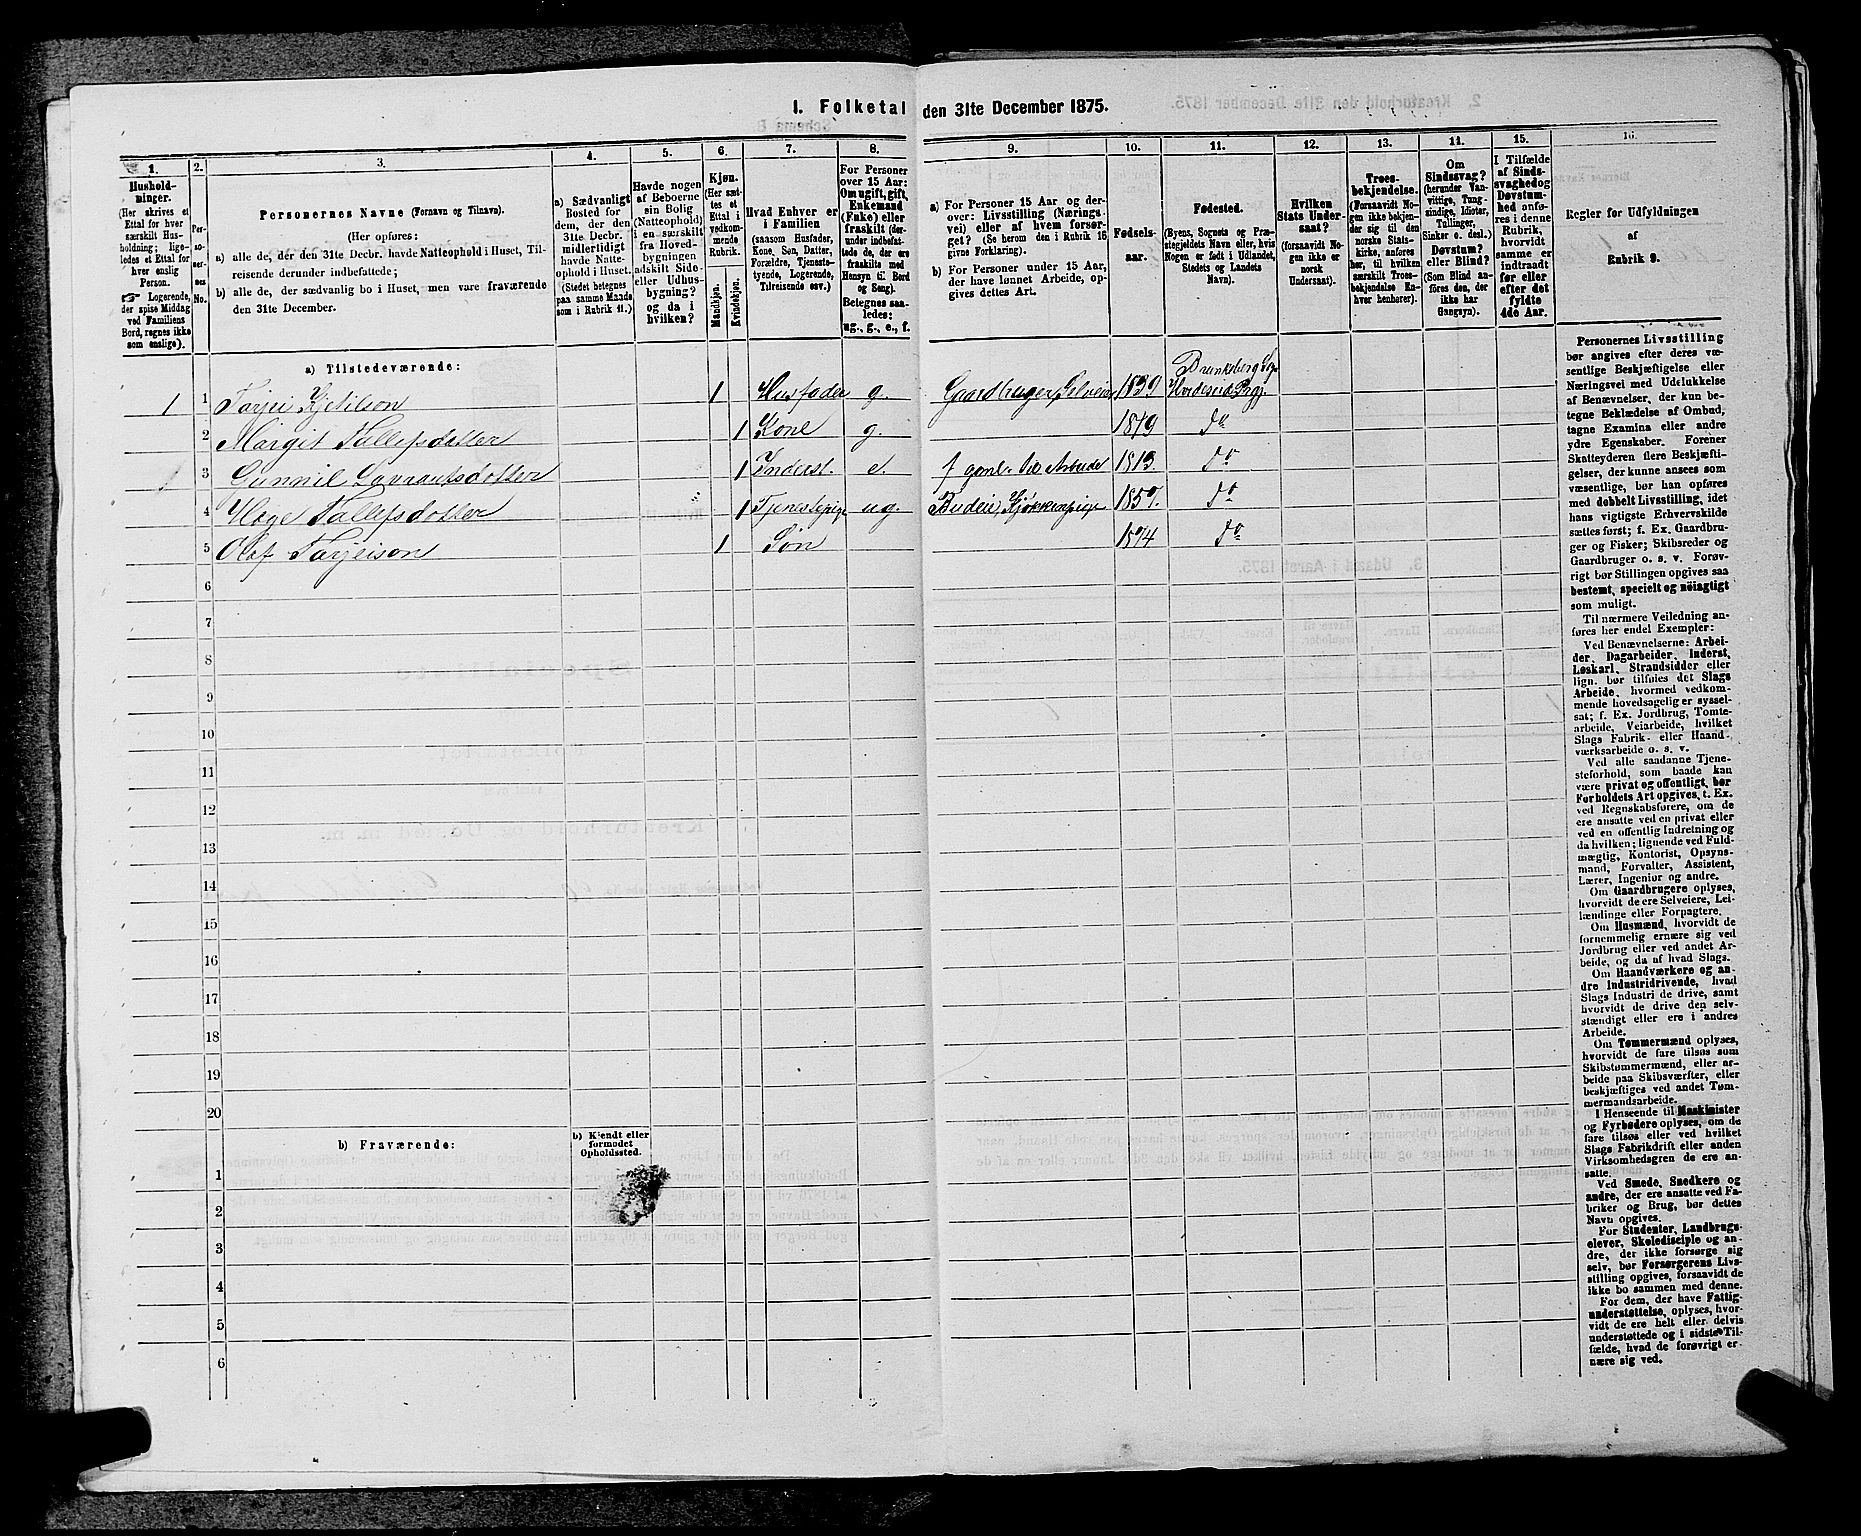 1. Folketal den 31te December 1875.
1. 2. 3. 4. 5. 6. 7. 8. 9. 10. 11. 12. 13. 14. 15. 16.
Hushold-
ninger.
(Her skrives et
Ettal for hver
særskilt Hus-
holdning; lige-
ledes et Ettal for
hver enslig
Person.
☞ Logerende,
der spise Middag
ved Familiens
Bord, regnes ikke
som enslige).
Per-
so-
ner-
nes
No.
Personernes Navne (Fornavn og Tilnavn).
(Her opføres:
a) alle de, der den 31te Decbr. havde Natteophold i Huset, Til-
reisende derunder indbefattede;
b) alle de, der sædvanlig bo i Huset, men vare fraværende
den 31te December.
a) Sædvanligt
Bosted for
dem, der den
31te Decbr.
midlertidigt
havde Natte-
ophold i Huset.
(Stedet betegnes
paa samme Maade
som i Rubrik 11.)
Havde nogen
af Beboerne
sin Bolig
(Natteophold)
i en særskilt
fra Hoved-
bygningen
adskilt Side-
eller Udhus-
bygning?
og da i
hvilken?
Kjøn.
(Her sæt-
tes et
Ettal i
vedkom-
mende
Rubrik.
Mandkjøn.
Kvindekjøn.
Hvad Enhver er
i Familien
(saasom Husfader,
Kone, Søn, Datter,
Forældre, Tjeneste-
tyende, Logerende,
Tilreisende osv.)
For Personer
over 15 Aar:
Om ugift, gift,
Enkemand
(Enke) eller
fraskilt (der-
under indbefat-
tede de, der ere
fraskilte med
Hensyn til Bord
og Seng).
Betegnes saa-
ledes:
ug., g., e., f.
a) For Personer 15 Aar og der-
over: Livsstilling (Nærings-
vei) eller af hvem forsør-
get? (Se herom den i Rubrik 16
givne Forklaring).
b) For Personer under 15 Aar,
der have lønnet Arbeide, op-
gives dettes Art.
Fødsels-
aar.
Fødested.
(Byens, Sognets og Præ-
stegjeldets Navn eller, hvis
Nogen er født i Udlandet,
Stedets og Landets
Navn).
Hvilken
Stats Under-
saat?
(forsaavidt No-
gen ikke er
norsk
Undersaat).
Troes-
bekjendelse.
(Forsaavidt No-
gen ikke bekjen-
der sig til den
norske Stats-
kirke, anføres
her, til hvilken
særskilt Troes-
bekjendelse En-
hver henhører).
Om
Sindssvag?
(herunder Van-
vittige, Tung-
sindige, Idioter,
Tullinger,
Sinker o. desl.)
Døvstum?
eller Blind?
(Som Blind an-
føres den, der
ikke har
Gangsyn).
I Tilfælde
af Sinds-
svaghed og
Døvstum-
hed anfø-
res i denne
Rubrik,
hvorvidt
samme er
indtraadt
før eller
efter det
fyldte
4de Aar.
Regler for Udfyldningen
af
Rubrik 9.
a) Tilstedeværende:
1 1 Tarjei Kjetilson 1 Husfader g. Gaardbruger, Selveier 1839 Brunkeberg Sogn Hvideseid Prgj.
2 Margit Tallefsdotter 1 Kone g. 1849 do
1 3 Gunnil Lavrantsdotter 1 Inderst. e. 1813. do
4 Hæge Tallefsdotter 1 Tjenestepige ug. Budeie, Kjøkkenpige 1857. do
5 Olaf Tarjeison 1 Søn 1874 do
6
7
8
9
10
11
12
13
14
15
16
17
18
19
20
b) Fraværende:
b) Kjendt eller
formodet
Opholdssted.
1
2
3
4
5
6
Personernes Livsstilling
bør angives efter deres væ-
sentlige Beskjæftigelse eller
Næringsvei med Udelukkelse
af Benævnelser, der kun be-
tegne Beklædelse af Ombud,
tagne Examina eller andre
ydre Egenskaber. Forener
Skatteyderen flere Beskjæfti-
gelser, der kunne ansees som
væsentlige, bør han opføres
med dobbelt Livsstilling, idet
hans vigtigste Erhvervskilde
sættes først; f. Ex. Gaardbru-
ger og Fisker; Skibsreder og
Gaardbruger o. s. v. Forøv-
rigt bør Stillingen opgives saa
bestemt, specielt og nöiagtigt
som muligt.
Til nærmere Veiledning an-
føres her endel Exempler:
Ved Benævnelserne: Arbei-
der, Dagarbeider, Inderst,
Løskarl, Strandsidder eller
lign. bør tilføies det Slags
Arbeide, hvormed vedkom-
mende hovedsagelig er syssel-
sat; f. Ex. Jordbrug, Tomte-
arbeide, Veiarbeide, hvilket
Slags Fabrik- eller Haand-
værksarbeide o. s. v.
Ved alle saadanne Tjene-
steforhold, som baade kan
være privat og offentligt, bør
Forholdets Art opgives, t. Ex.
ved Regnskabsførere, om de
ere ansatte ved en privat eller
ved en offentlig Indretning og
da hvilken; lignende ved Fuld-
mægtig, Kontorist, Opsyns-
mand, Forvalter, Assistent,
Lærer, Ingeniør og andre.
Om Gaardbrugere oplyses,
hvorvidt de ere Selveiere, Lei-
lændinge eller Forpagtere.
Om Husmænd, hvorvidt de
fornemmelig ernære sig ved
Jordbrug eller ved andet Ar-
beide, og da af hvad Slags.
Om Haandværkere og an-
dre Industridrivende, hvad
Slags Industri de drive, samt
hvorvidt de drive den selv-
stændigt eller ere i andres
Arbeide.
Om Tømmermænd oplyses,
hvorvidt de fare tilsøs som
Skibstømmermænd, eller ar-
beide paa Skibsværfter, eller
beskjæftiges ved andet Tøm-
mermandsarbeide.
I Henseende til Maskinister
og Fyrbødere oplyses, om de
fare tilsøs eller ved hvilket
Slags Fabrikdrift eller anden
Virksomhedsgren de ere an-
satte.
Ved Smede, Snedkere og
andre, der ere ansatte ved Fa-
briker og Brug, bør dettes
Navn opgives.
For Studenter, Landbrugs-
elever, Skoledisciple og an-
dre, der ikke forsørge sig
selv, bør Forsørgerens Livs-
stilling opgives, forsaavidt de
ikke bo sammen med denne.
For dem, der have Fattig-
understøttelse, oplyses, hvor-
vidt de ere helt eller delvis
understøttede og i sidste Til-
fælde, hvad de forøvrigt er-
nære sig ved.